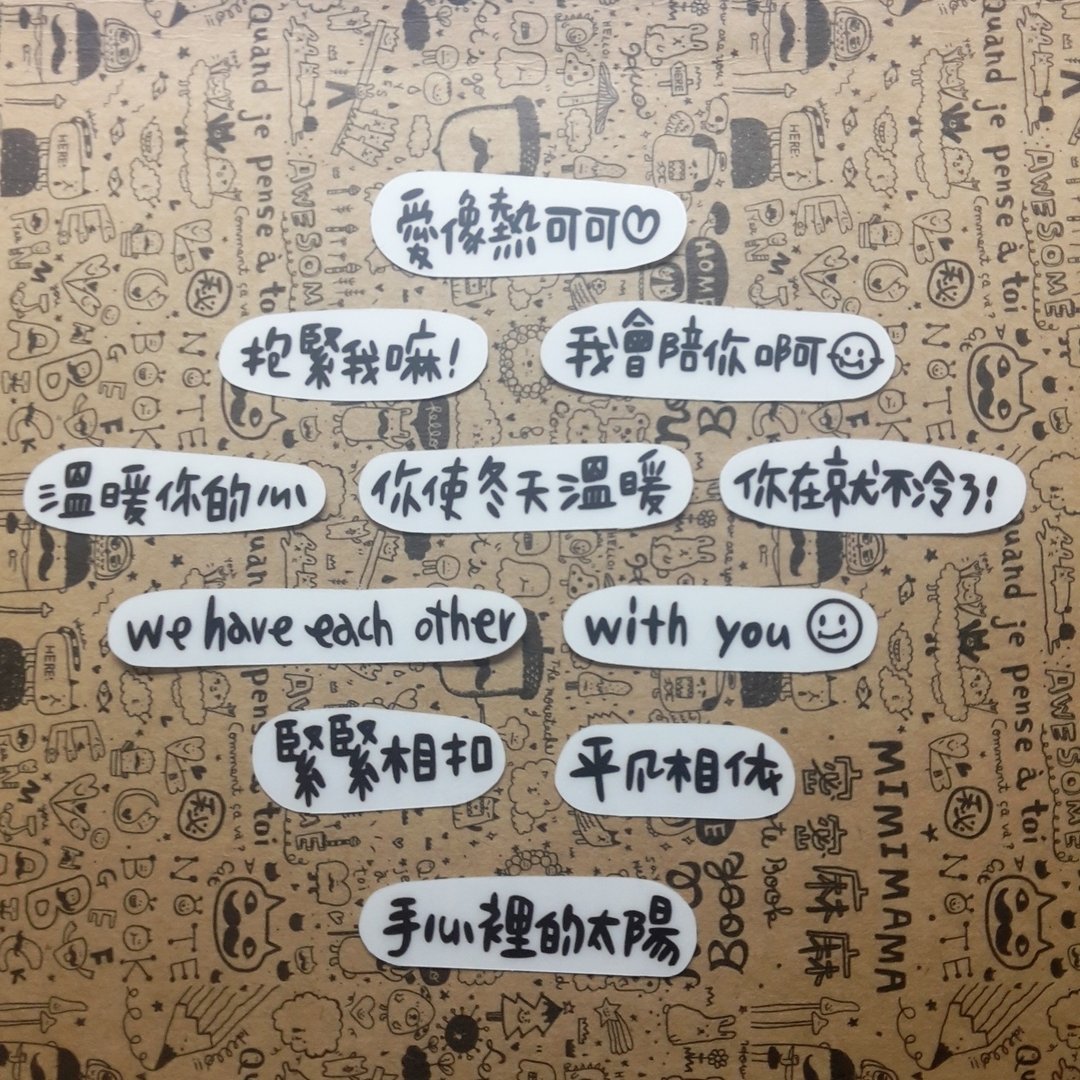 愛像熱可可♡
抱緊我嘛!
我會陪你啊
溫暖你的心
你使冬天溫暖
你在就不冷了!
we have each other
with you
緊緊相扣
平凡相依
手心裡的太陽
Quand je pense à toi
AWESOME
Comment ça va?
HERE
HOME
NOTE
BOOK
秘
Cat
Hello!!
The moustache
Let's go
MIMIMAMA
密密麻麻
Note Book